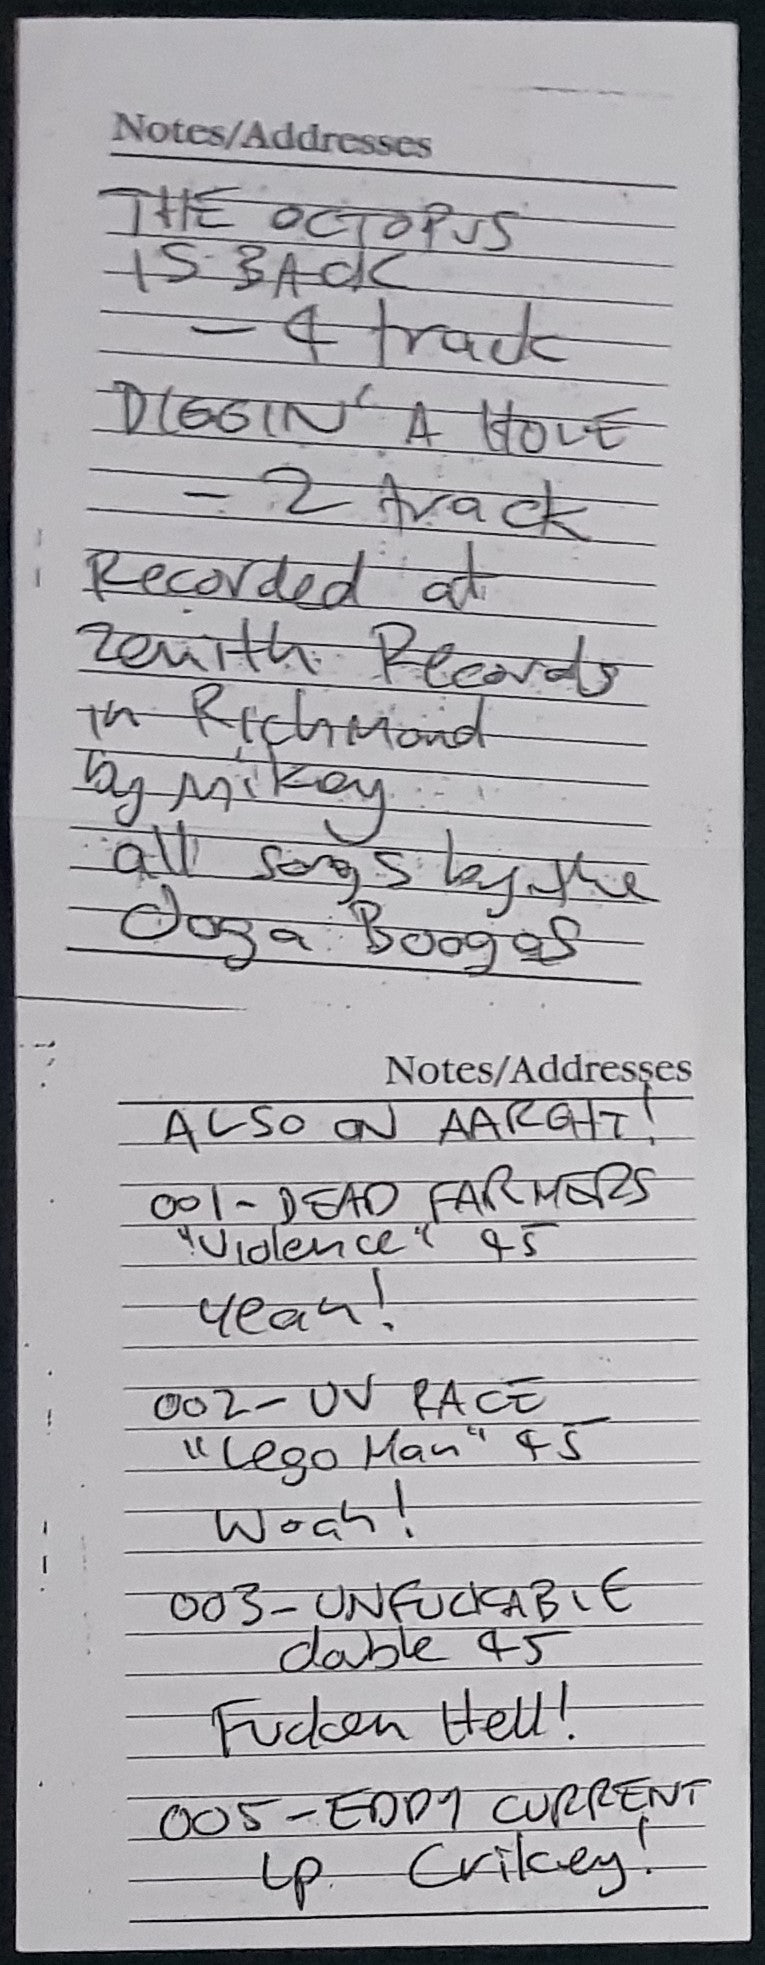 Notes/Addresses
THE OCTOPUS
IS BACK
- 4 track
DIGGIN' A HOLE
- 2 track
Recorded at
Zenith Records
in Richmond
by Mikey
all songs by the
Ooga Boogas
Notes/Addresses
ALSO ON AARGHT!
001- DEAD FARMERS
"Violence" 45
yeah!
002- UV RACE
"Lego Man" 45
Woah!
003- UNFUCKABLE
doble 45
Fucken Hell!
005- EDDY CURRENT
LP Crikey!